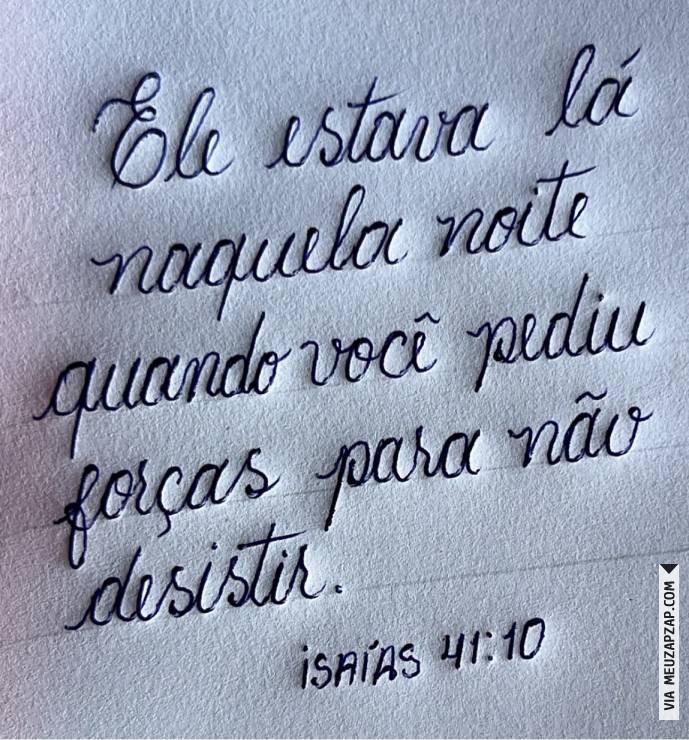 Ele estava lá
naquela noite
quando você pediu
forças para não
desistir.
ISAÍAS 41:10
VIA MEUZAPZAP.COM